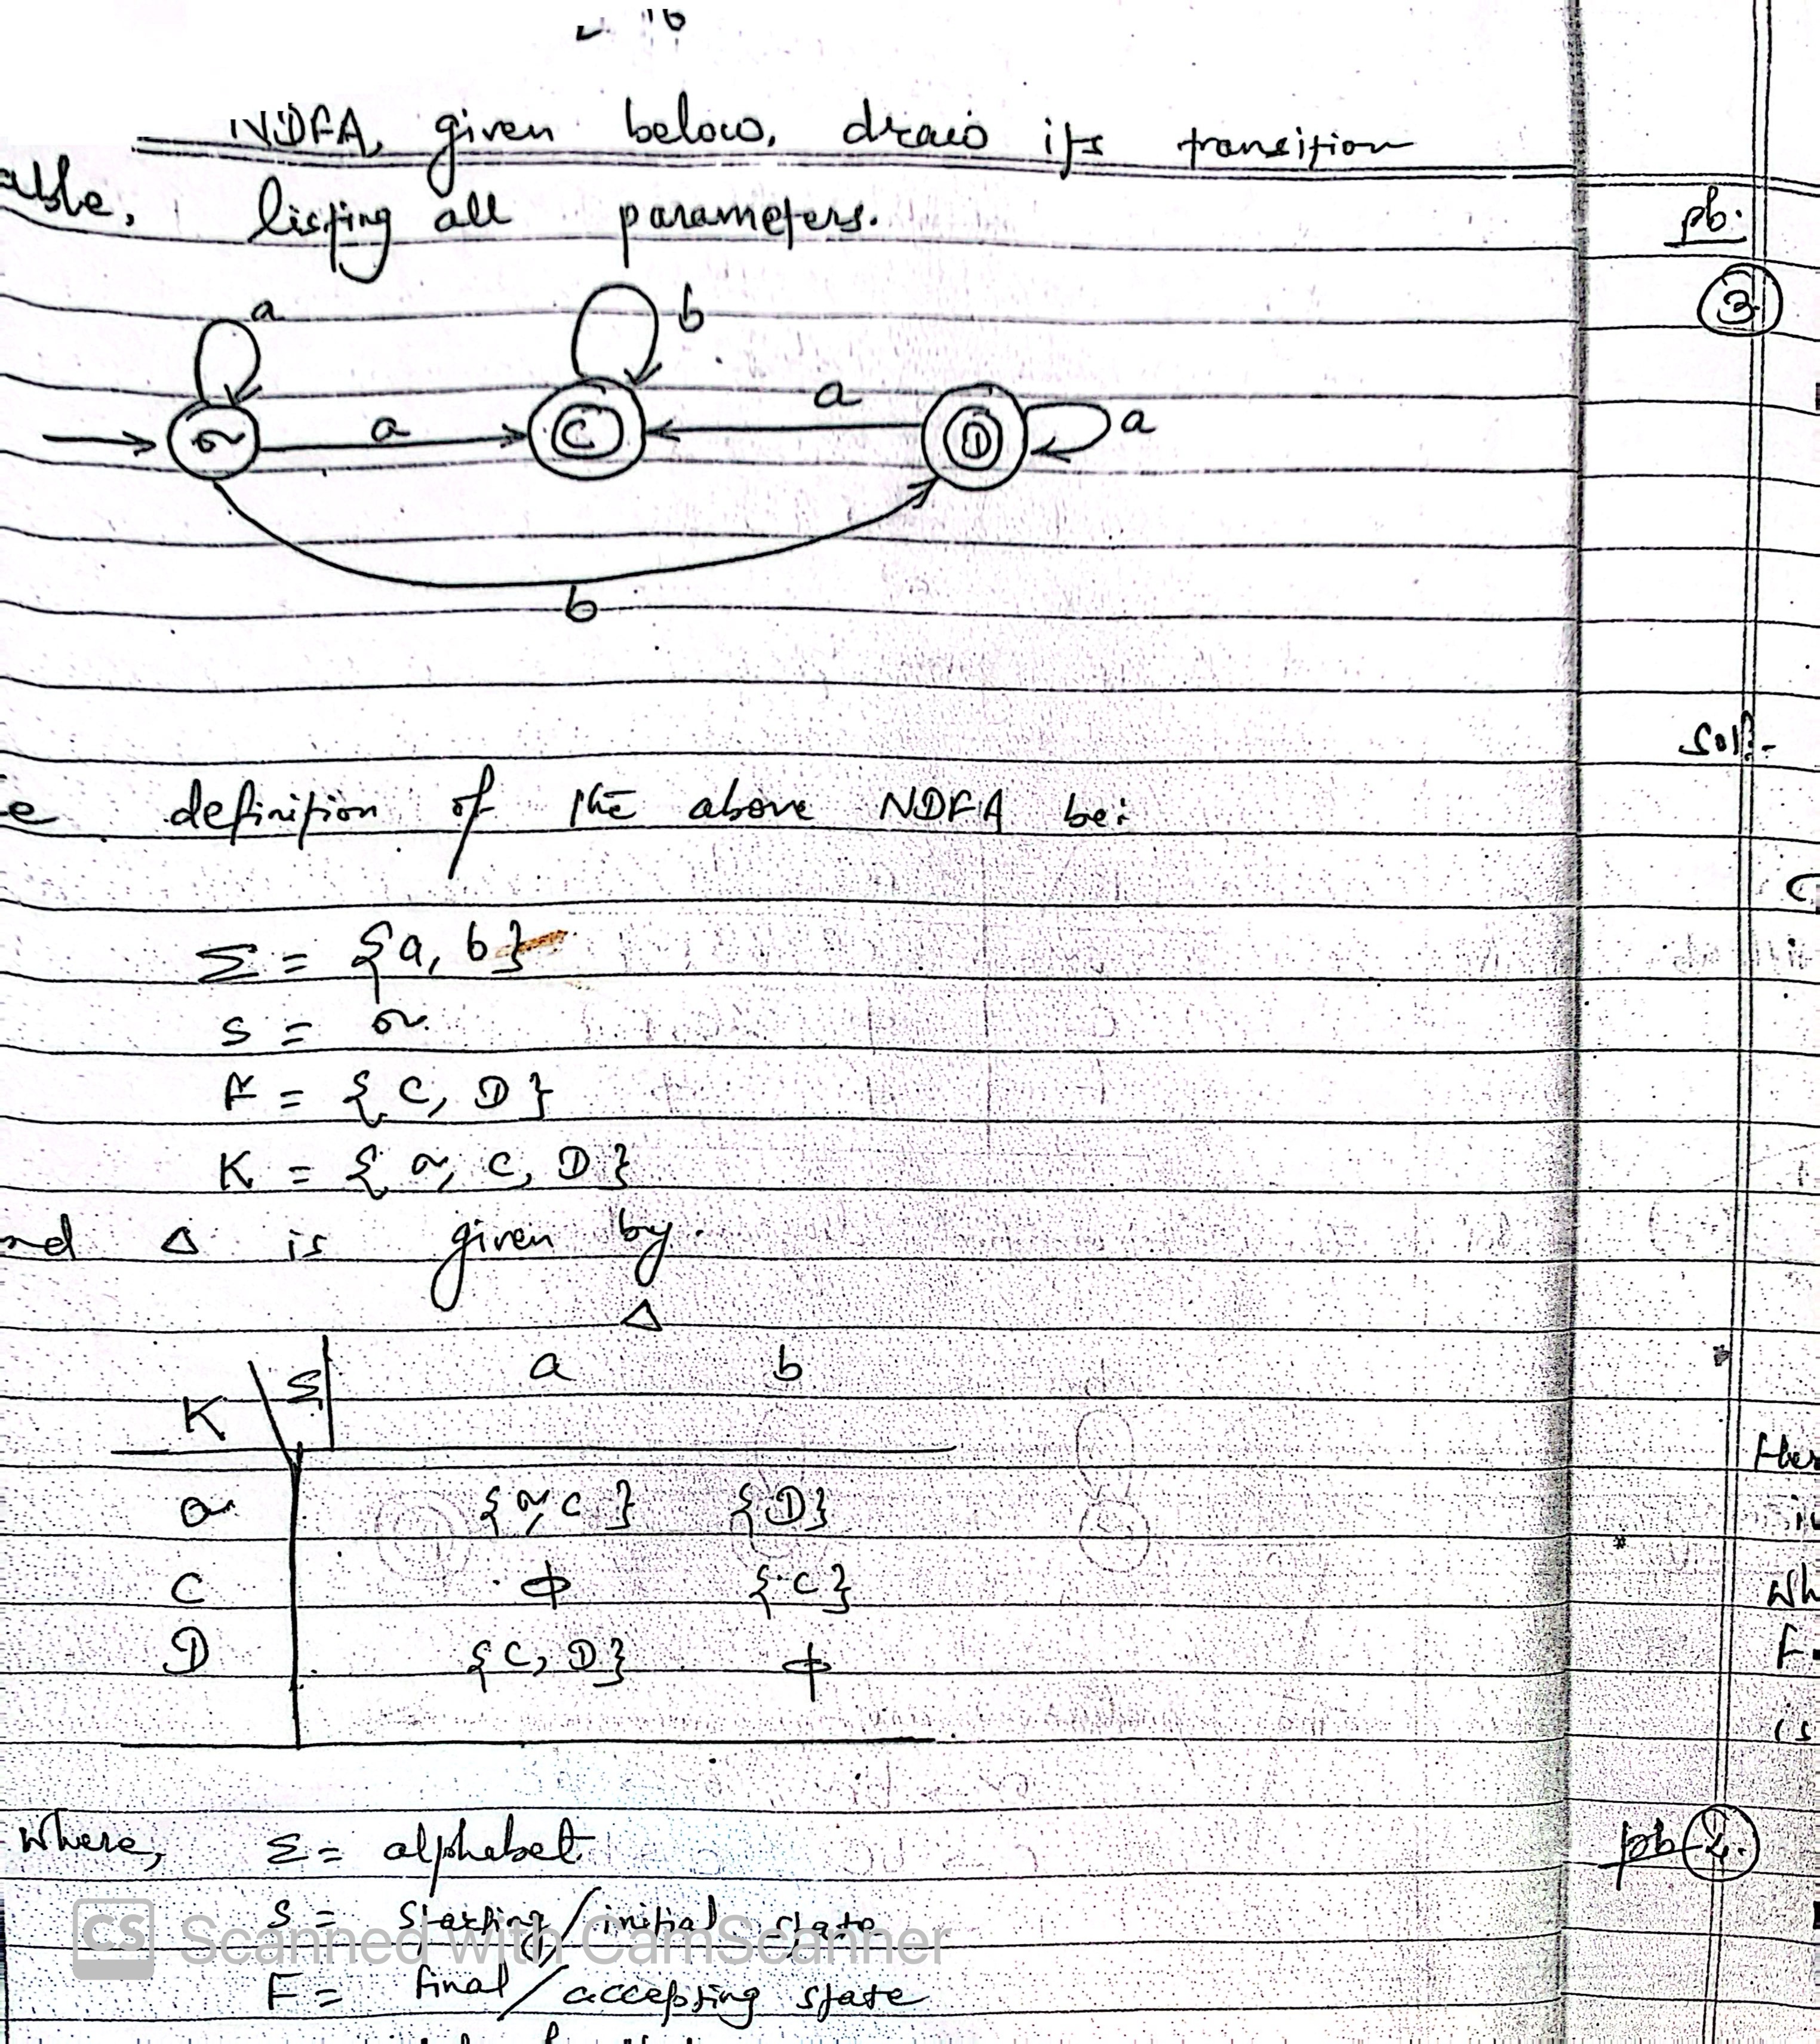 NDFA, given below, draw its transition
listing all parameters.
a
b
a
a
C
D
a
b
definition of the above NDFA be:
Σ = {a, b}
S = σ
F = {C, D}
K = {σ, C, D}
Δ is given by
Δ
K Σ a b
σ {σ, C} {D}
C ϕ {C}
D {C, D} ϕ
where, Σ = alphabet
S = starting/initial state
F = final/accepting state
Scanned with CamScanner
CS
pb.
3
Soln.-
pb 2.